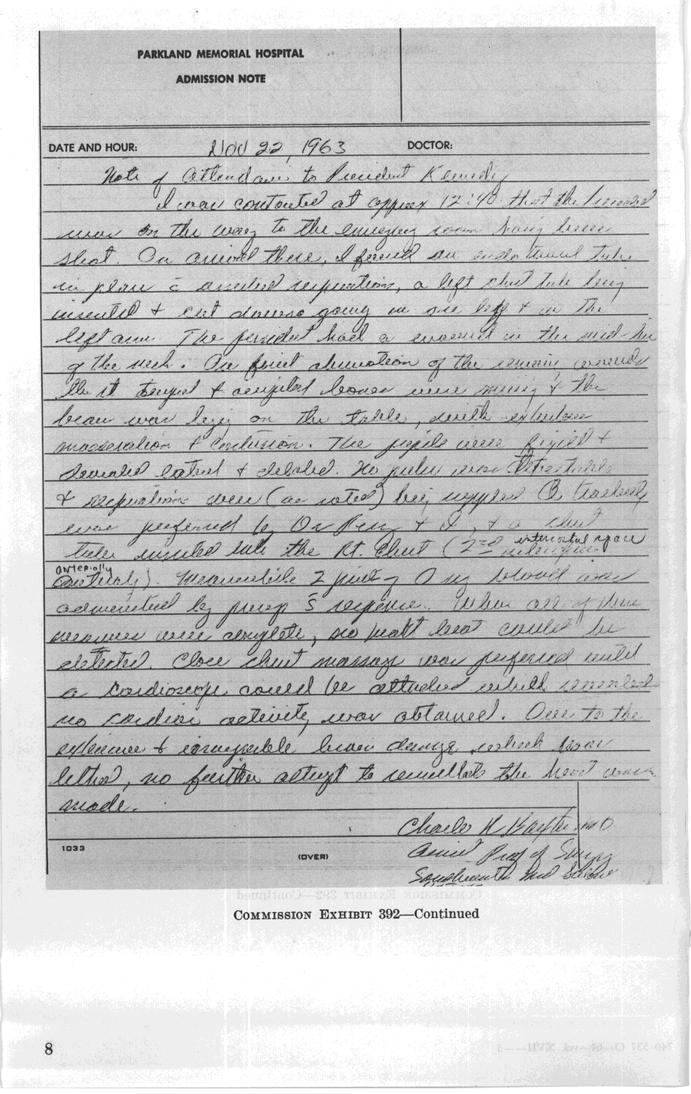 PARKLAND MEMORIAL HOSPITAL
ADMISSION NOTE
DATE AND HOUR: Nov 22, 1963 DOCTOR:
Note of Attendance to President Kennedy
I was contacted at approx 12:40 that the President
was on the way to the emergency room having been
shot. On arrival there, I found an endotracheal tube
in place c̄ assisted respirations, a left chest tube being
inserted & cut downs going in one leg & in the
left arm. The president had a wound in the mid-line
of the neck. On first observation of the remaining wounds
the rt temporal & occipital bones were missing & the
brain was lying on the table, with extensive
maceration & contusion. The pupils were fixed &
deviated lateral & dilated. No pulse was detectable
& respirations were (as noted) being supplied. A tracheotomy
was performed by Dr Perry & I, & a chest
tube inserted into the Rt. Chest (2nd intercostal space
anteriorly). Meanwhile 2 pints of O neg blood were
administered by pump s̄ response. When all of these
measures were complete, no heart beat could be
detected. Close chest massage was performed until
a cardioscope could be attached which revealed
no cardiac activity, was obtained. Due to the
extensive & irreparable brain damage which was
lethal, no further attempt to resuscitate the heart was
made.
Charles R Baxter MD
Assoc Prof of Surgery
Southwestern Med School
1033
(OVER)
COMMISSION EXHIBIT 392—Continued
8